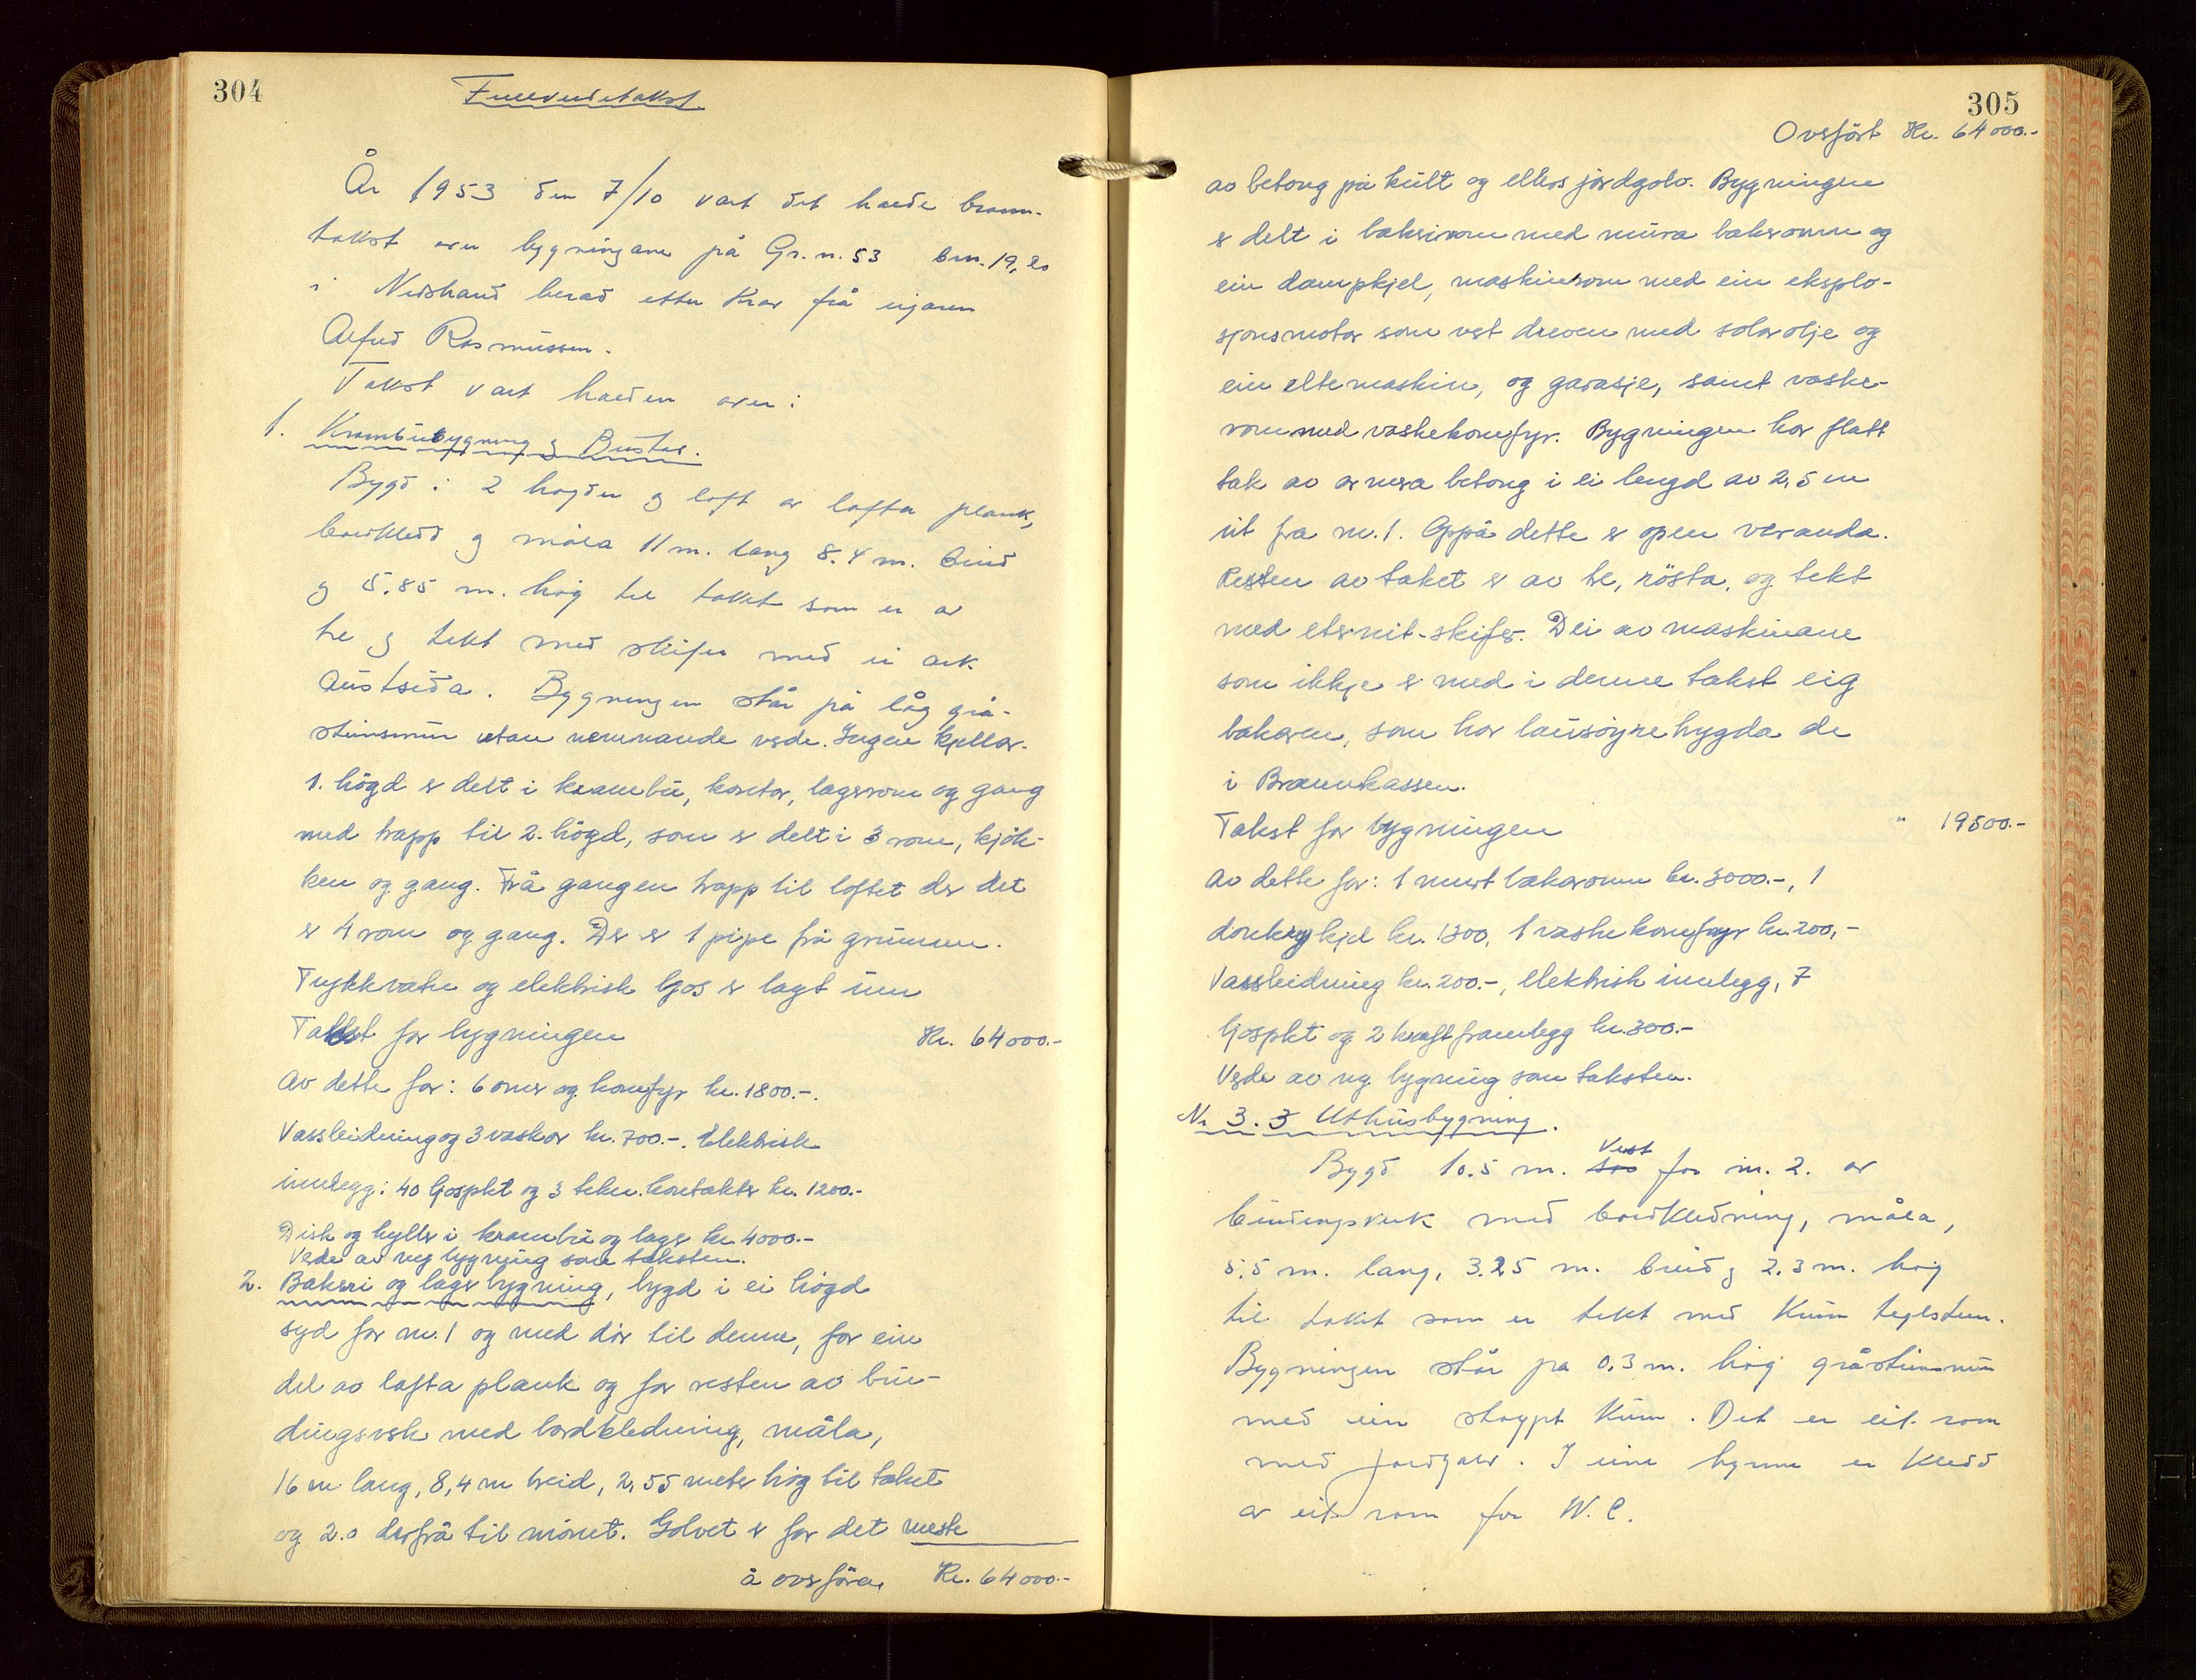 304
Fullverdetakst
År 1953 den 7/10 vart det halde brann-
takst over bygningane på Gr.n. 53 bn. 19,20
i Nedstrand herad etter krav frå eigaren
Alfred Rasmussen.
Takst vart halden over:
1. Krambubygning og Bustad.
Bygd i 2 høgder og loft av lafta plank,
bordkledd og måla 11 m. lang 8.4 m. breid
og 5.85 m. høg til taket som er av
tre og tekt med skifer med ei ark
Austsida. Bygningen står på låg grå-
steinsmur utan nemnande verde. Ingen kjellar.
1. høgd er delt i krambu, kontor, lagerrom og gang
med trapp til 2. høgd, som er delt i 3 rom, kjøk-
ken og gang. Frå gangen trapp til loftet der det
er 4 rom og gang. Der er 1 pipe frå grunnen.
Trykkvatn og elektrisk ljos er lagt inn
Takst for bygningen Kr. 64000.-
Av dette for: 6 omner og komfyr kr. 1800.-.
Vassleidning og 3 vaskar kr. 700.-. Elektrisk
innlegg: 40 ljospkt og 3 tekn. kontakter kr. 1200.-
Disk og hyller i krambu og lager kr 4000.-
Verde av neg bygning som taksten.
2. Bakeri og lagerbygning, bygd i ei høgd
syd for nr. 1 og med dør til denne, for ein
del av lafta plank og for resten av bin-
dingsverk med bordkledning, måla,
16 m lang, 8,4 m breid, 2,55 meter høg til taket
og 2.0 derfrå til mønet. Golvet er for det meste
å overføra Kr. 64000.-
305
Overført Kr. 64000.-
av betong på kult og ellers jordgolv. Bygningen
er delt i bakerirom med mura bakeromn og
ein dampkjel, maskinrom med ein eksplo-
sjonsmotor som vert dreven med solarolje og
ein eltemaskin, og garasje, samt vaske-
rom med vaskekomfyr. Bygningen har flatt
tak av armera betong i ei lengd av 2,5 m
ut fra nr. 1. Oppå dette er open veranda.
Resten av taket er av tre, røsta, og tekt
med eternit-skifer. Dei av maskinane
som ikkje er med i denne takst eig
bakaren, som har lausøyretrygda de
i Brannkassen.
Takst for bygningen " 19500.-
Av dette for: 1 murt bakaromn kr. 3000.-, 1
kjel kr. 1300, 1 vaskekomfyr kr. 200,-
Vassleidning kr. 200.-, elektrisk innlegg, 7
ljospkt og 2 kraftframlegg kr. 300.-
Verde av neg bygning som taksten.
Nr 3. 3 Uthusbygning.
Bygd 10.5 m. Vest for nr. 2. av
bindingsverk med bordkledning, måla,
5.5 m. lang, 3.25 m. breid og 2.3 m. høg
til taket som er tekt med Krum teglstein.
Bygningen står på 0.3 m. høg gråsteinsmur
med ein støypt Kum. Det er eit rom
med jordgolv. I eine hyrna er kledd
av eit rom for W. C.